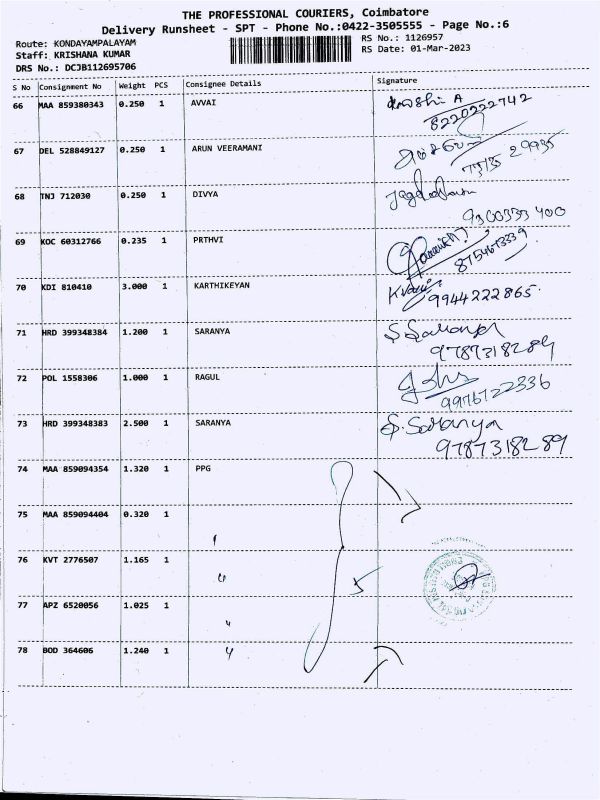 THE PROFESSIONAL COURIERS, Coimbatore
Delivery Runsheet - SPT - Phone No.:0422-3505555 - Page No.:6
Route: KONDAYAMPALAYAM
RS No.: 1126957
Staff: KRISHANA KUMAR
RS Date: 01-Mar-2023
DRS No.: DCJB112695706
S No Consignment No Weight PCS Consignee Details Signature
66 MAA 859380343 0.250 1 AVVAI
8220222742
67 DEL 528849127 0.250 1 ARUN VEERAMANI
68 TNJ 712030 0.250 1 DIVYA
9300333400
69 KOC 60312766 0.235 1 PRTHVI
70 KDI 810410 3.000 1 KARTHIKEYAN
9944222865.
71 HRD 399348384 1.200 1 SARANYA
S Saranya
9787318289
72 POL 1558306 1.000 1 RAGUL
9976722336
73 HRD 399348383 2.500 1 SARANYA
S. Saranya
9787318289
74 MAA 859094354 1.320 1 PPG
75 MAA 859094404 0.320 1
76 KVT 2776507 1.165 1
5
77 APZ 6520056 1.025 1
78 BOD 364606 1.240 1